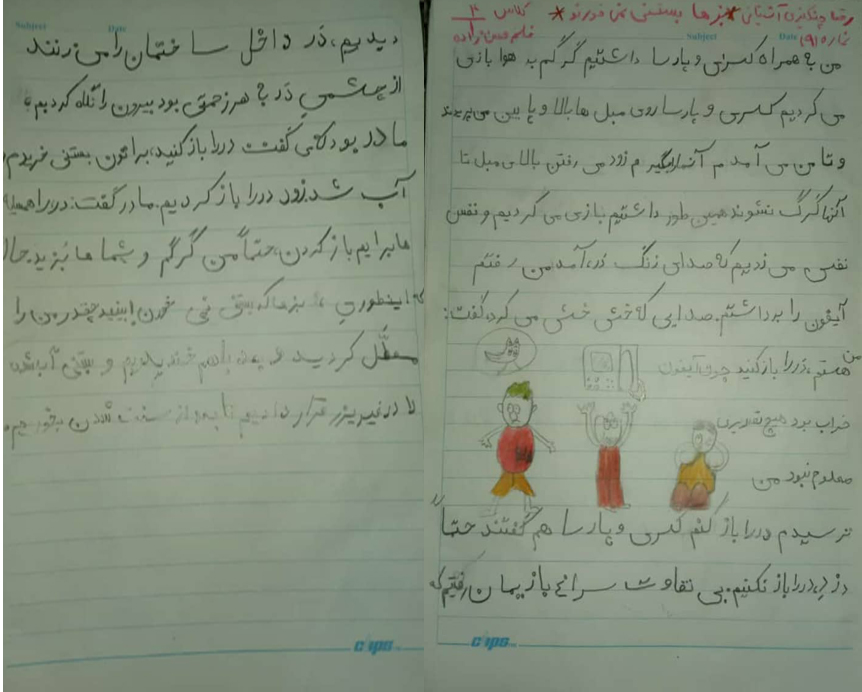 رضا چنگیزی آشتیانی *بزها بستنی نمی‌خورند* کلاس ۴
نماره (۹)
Subject Date
من به همراه کسری و پارسا داشتیم گرگم به هوا بازی
می کردیم کسری و پارسا روی مبل ها بالا و پایین می پریدند
و تا من می آمدم آنهارابگیرم زود می رفتن بالای مبل تا
آنها گرگ نشوند همین طور داشتیم بازی می کردیم و نفس
نفس می زدیم که صدای زنگ در، آمد من رفتم
آیفون را برداشتم. صدایی که خش خش می کرد، گفت:
من هستم، در را باز کنید چون آیفون
خراب بود هیچ تصویری
معلوم نبود من
ترسیدم در را باز کنم کسری و پارسا هم گفتند حتماً
دزد، در را باز نکنیم. بی تفاوت سراغ بازیمان رفتیم که
clips
Subject Date
دیدیم، در داخل ساختمان را می زنند
از چشمی در به هر زحمتی بود بیرون را نگاه کردیم
مادر بود که می گفت در را باز کنید، براتون بستنی خریدم
آب شد. زود در را باز کردیم. مادر گفت: در را همسایه
ها برایم باز کردن، حتماً من گرگم و شما ها بُزید. حالا
که اینطوری، بزها که بستنی نمی خورن ببینید چقدر من را
معطّل کردید و بعد با هم خندیدیم و بستنی آب شده
را در فریزر قرار دادیم تا بعد از سفت شدن بخوریم.
clips